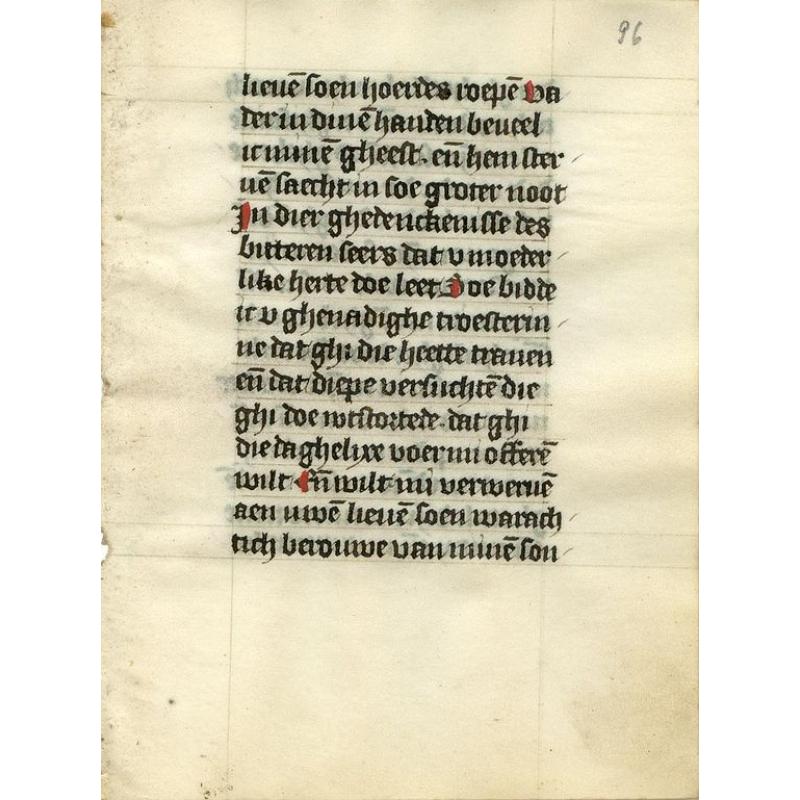 96
lieuē soen hoerdes roepē Va
der in dinē handen beueel
ic minē gheest. eñ hem ster
uē saecht in soe groter noot
In dier ghedenckenisse des
bitteren seers dat v moeder
like herte doe leet Soe bidde
ic v ghenadighe troesterin
ne dat ghi die heete tranen
eñ dat diepe versuchtē die
ghi doe wtstortede. dat ghi
die daghelixe voer mi offerē
wilt Eñ wilt mi verweruē
aen uwē lieuē soen warach
tich berouwe van minē son